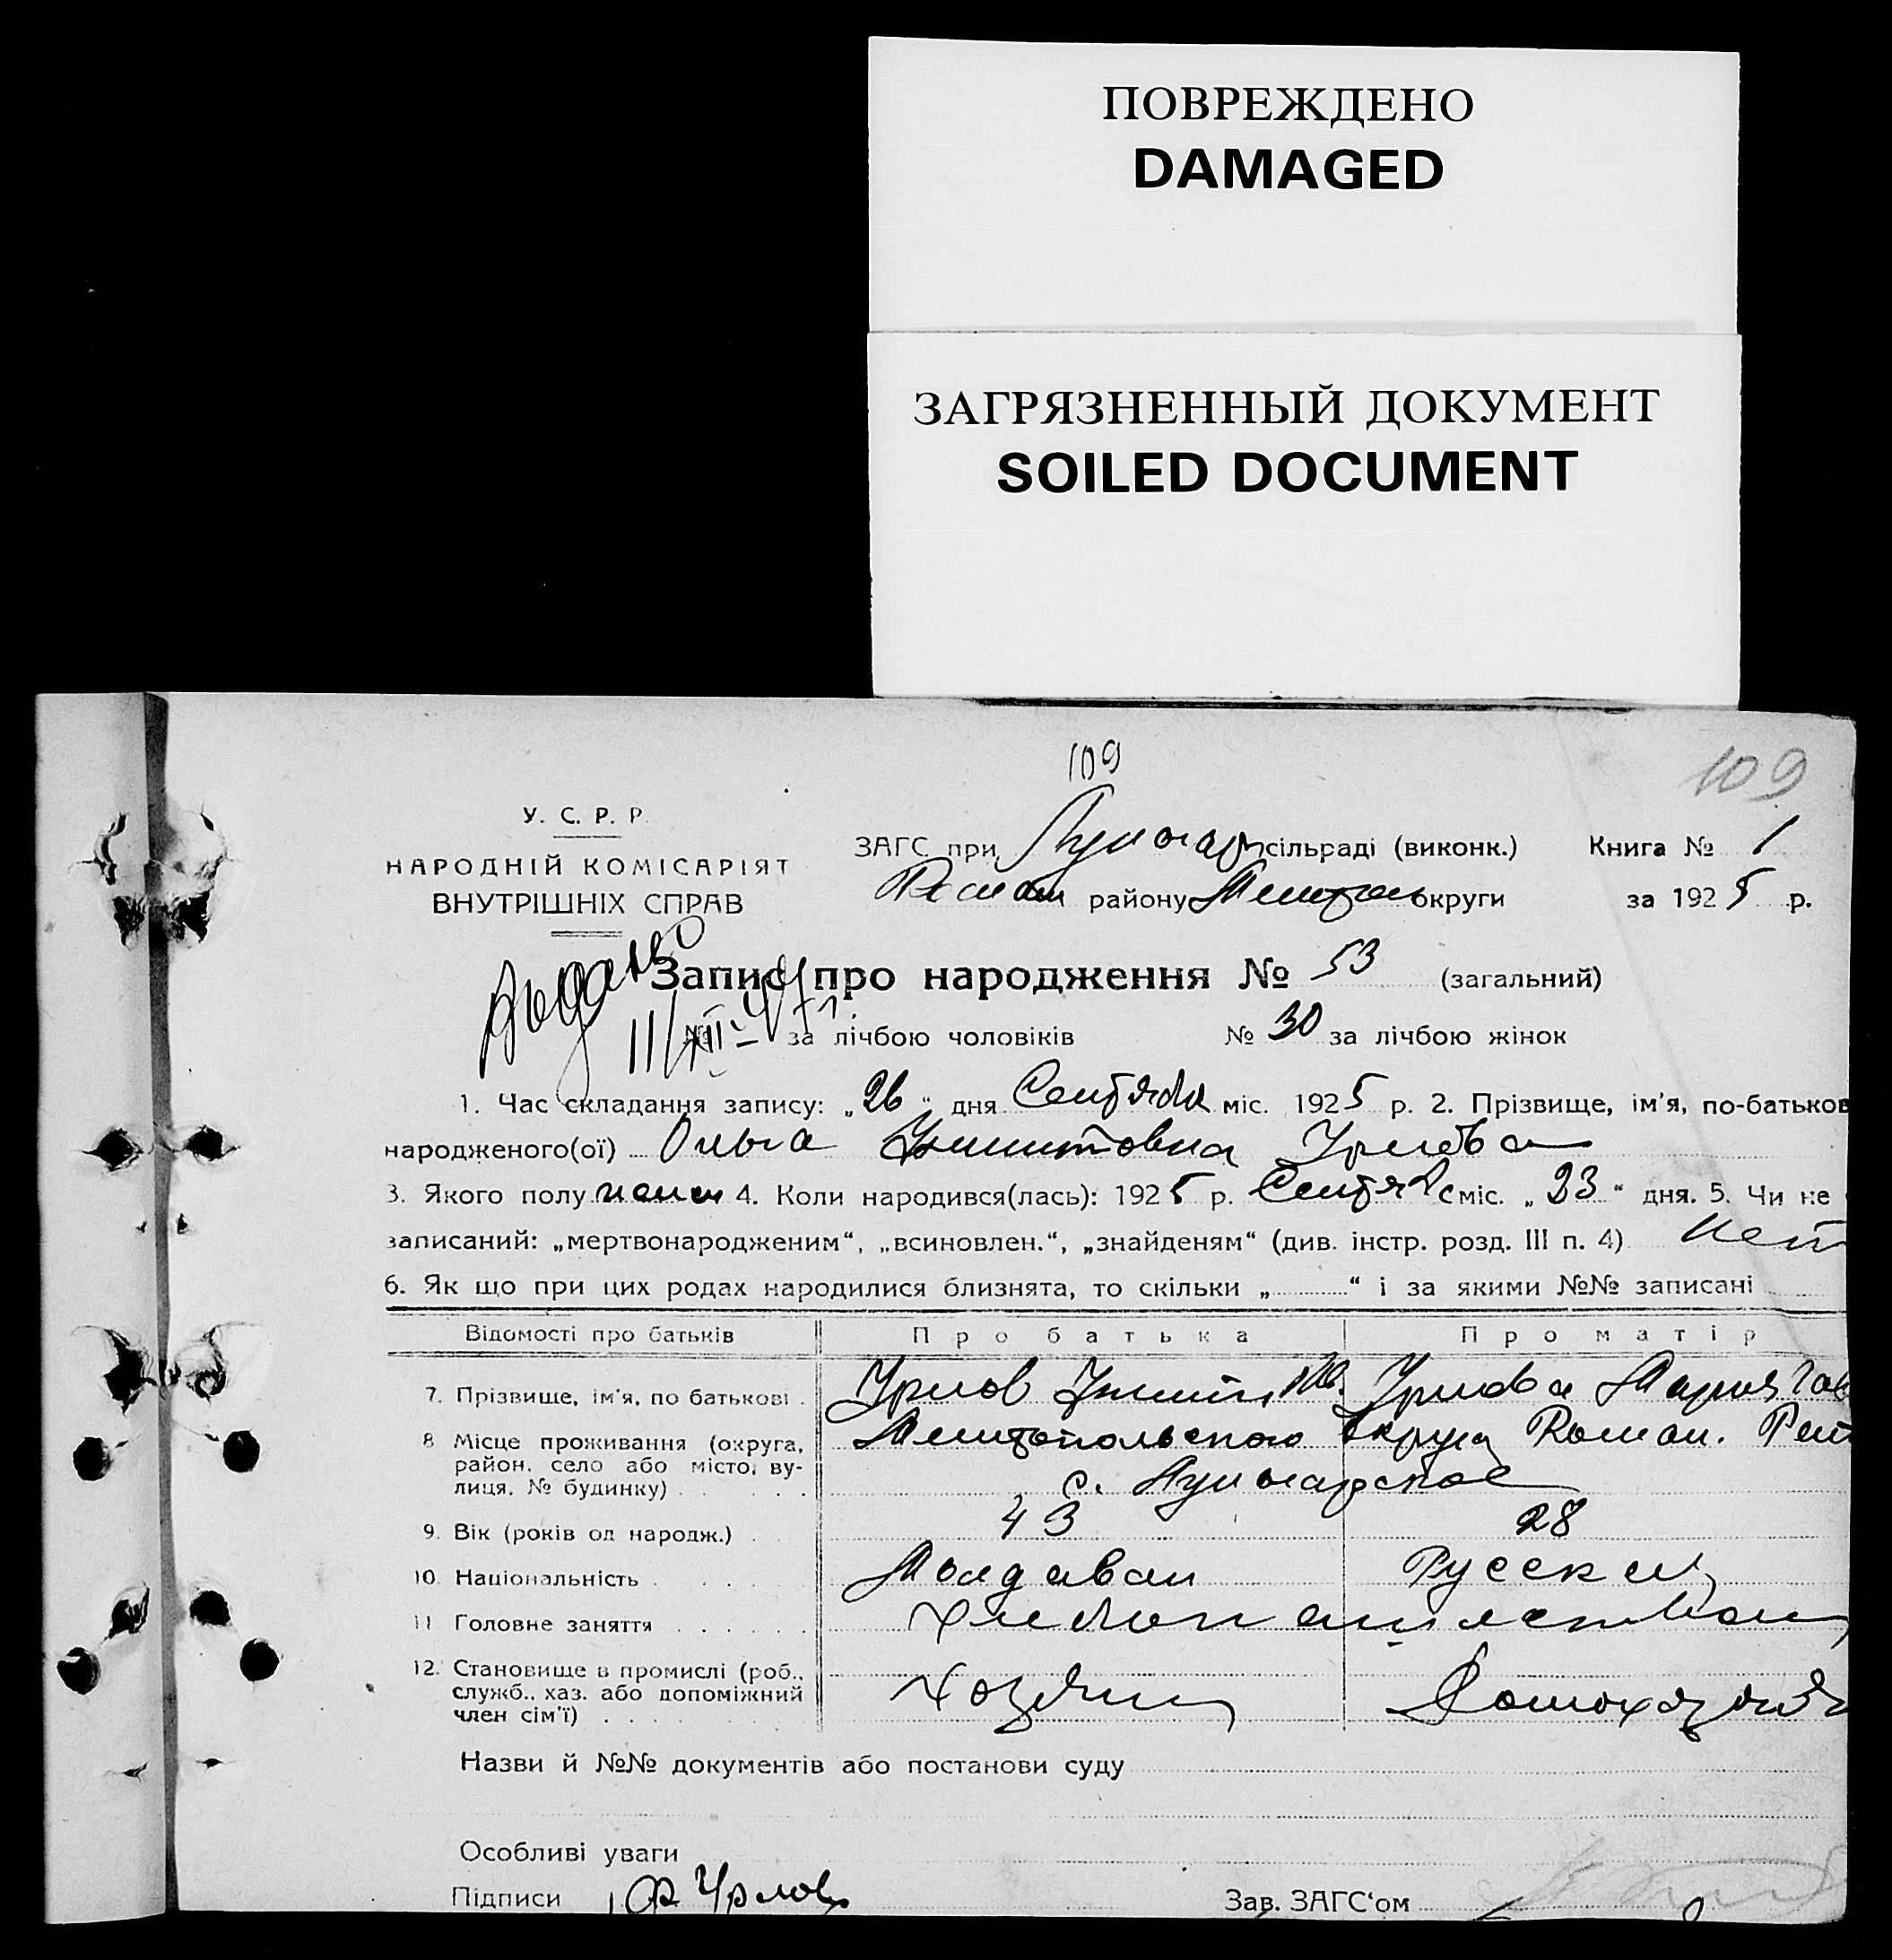 ПОВРЕЖДЕНО
DAMAGED
ЗАГРЯЗНЕННЫЙ ДОКУМЕНТ
SOILED DOCUMENT
109
109
У. С. Р. Р.
НАРОДНІЙ КОМІСАРІЯТ
ВНУТРІШНІХ СПРАВ
ЗАГС при сільраді (виконк.) Книга № 1
району округи за 1925 р.
Выдано
Запис про народження № 53 (загальний)
11/XII-47 г.
№ за лічбою чоловіків № 30 за лічбою жінок
1. Час складання запису: „26“ дня Сентября міс. 1925 р. 2. Прізвище, ім'я, по-батьков
народженого(ої) Ольга Урлова
3. Якого полу 4. Коли народився(лась): 1925 р. міс. „23“ дня. 5. Чи не
записаний: „мертвонародженим“, „всиновлен.“, „знайденям“ (див. інстр. розд. III п. 4) Нет
6. Як що при цих родах народилися близнята, то скільки „ “ і за якими №№ записані
Відомості про батьків Про батька Про матір
7. Прізвище, ім'я, по батькові Урлов Урлова Мария
8 Місце проживання (округа, Мелитопольского округа Роман.
район, село або місто, ву-
лиця, № будинку) с.
9. Вік (років од народж.) 43 28
10. Національність Молдаван Русская
11 Головне заняття Хлебопашество
12. Становище в промислі (роб., Хозяин
служб., хаз. або допоміжний
член сім'ї)
Назви й №№ документів або постанови суду
Особливі уваги
Підписи Урлов
Зав. ЗАГС'ом